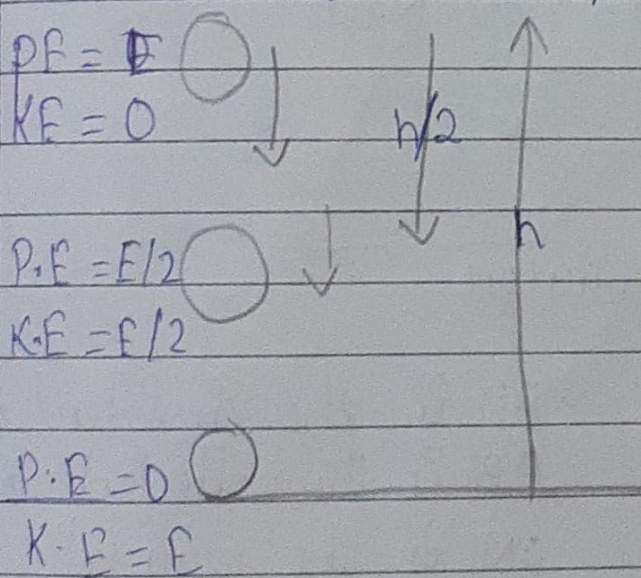 PE = E
KE = 0
h/2
P.E = E/2
h
K.E = E/2
P.E = 0
K.E = E